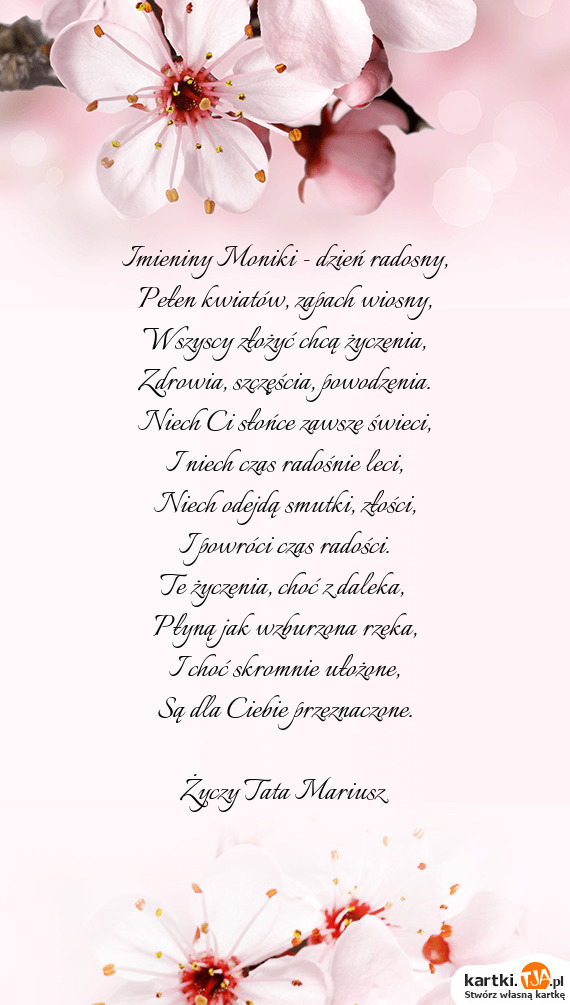 Imieniny Moniki - dzień radosny,
Pełen kwiatów, zapach wiosny,
Wszyscy złożyć chcą życzenia,
Zdrowia, szczęścia, powodzenia.
Niech Ci słońce zawsze świeci,
I niech czas radośnie leci,
Niech odejdą smutki, złości,
I powróci czas radości.
Te życzenia, choć z daleka,
Płyną jak wzburzona rzeka,
I choć skromnie ułożone,
Są dla Ciebie przeznaczone.
Życzy Tata Mariusz
kartki.TJA.pl
Stwórz własną kartkę